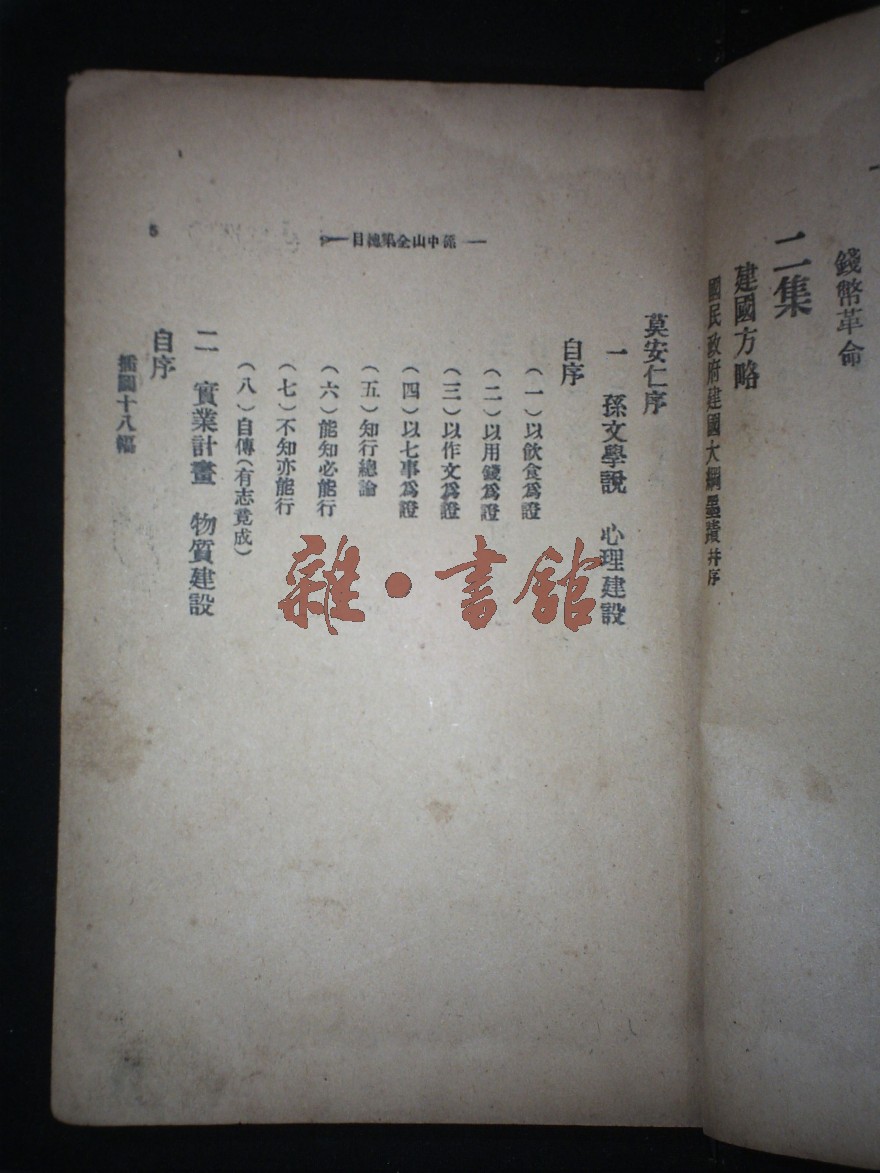 錢幣革命
二集
建國方略
國民政府建國大綱墨蹟 并序
孫中山全集總目
5
莫安仁序
一 孫文學說 心理建設
自序
(一)以飲食為證
(二)以用錢為證
(三)以作文為證
(四)以七事為證
(五)知行總論
(六)能知必能行
(七)不知亦能行
(八)自傳(有志竟成)
二 實業計畫 物質建設
自序
插圖十八幅
雜·書館